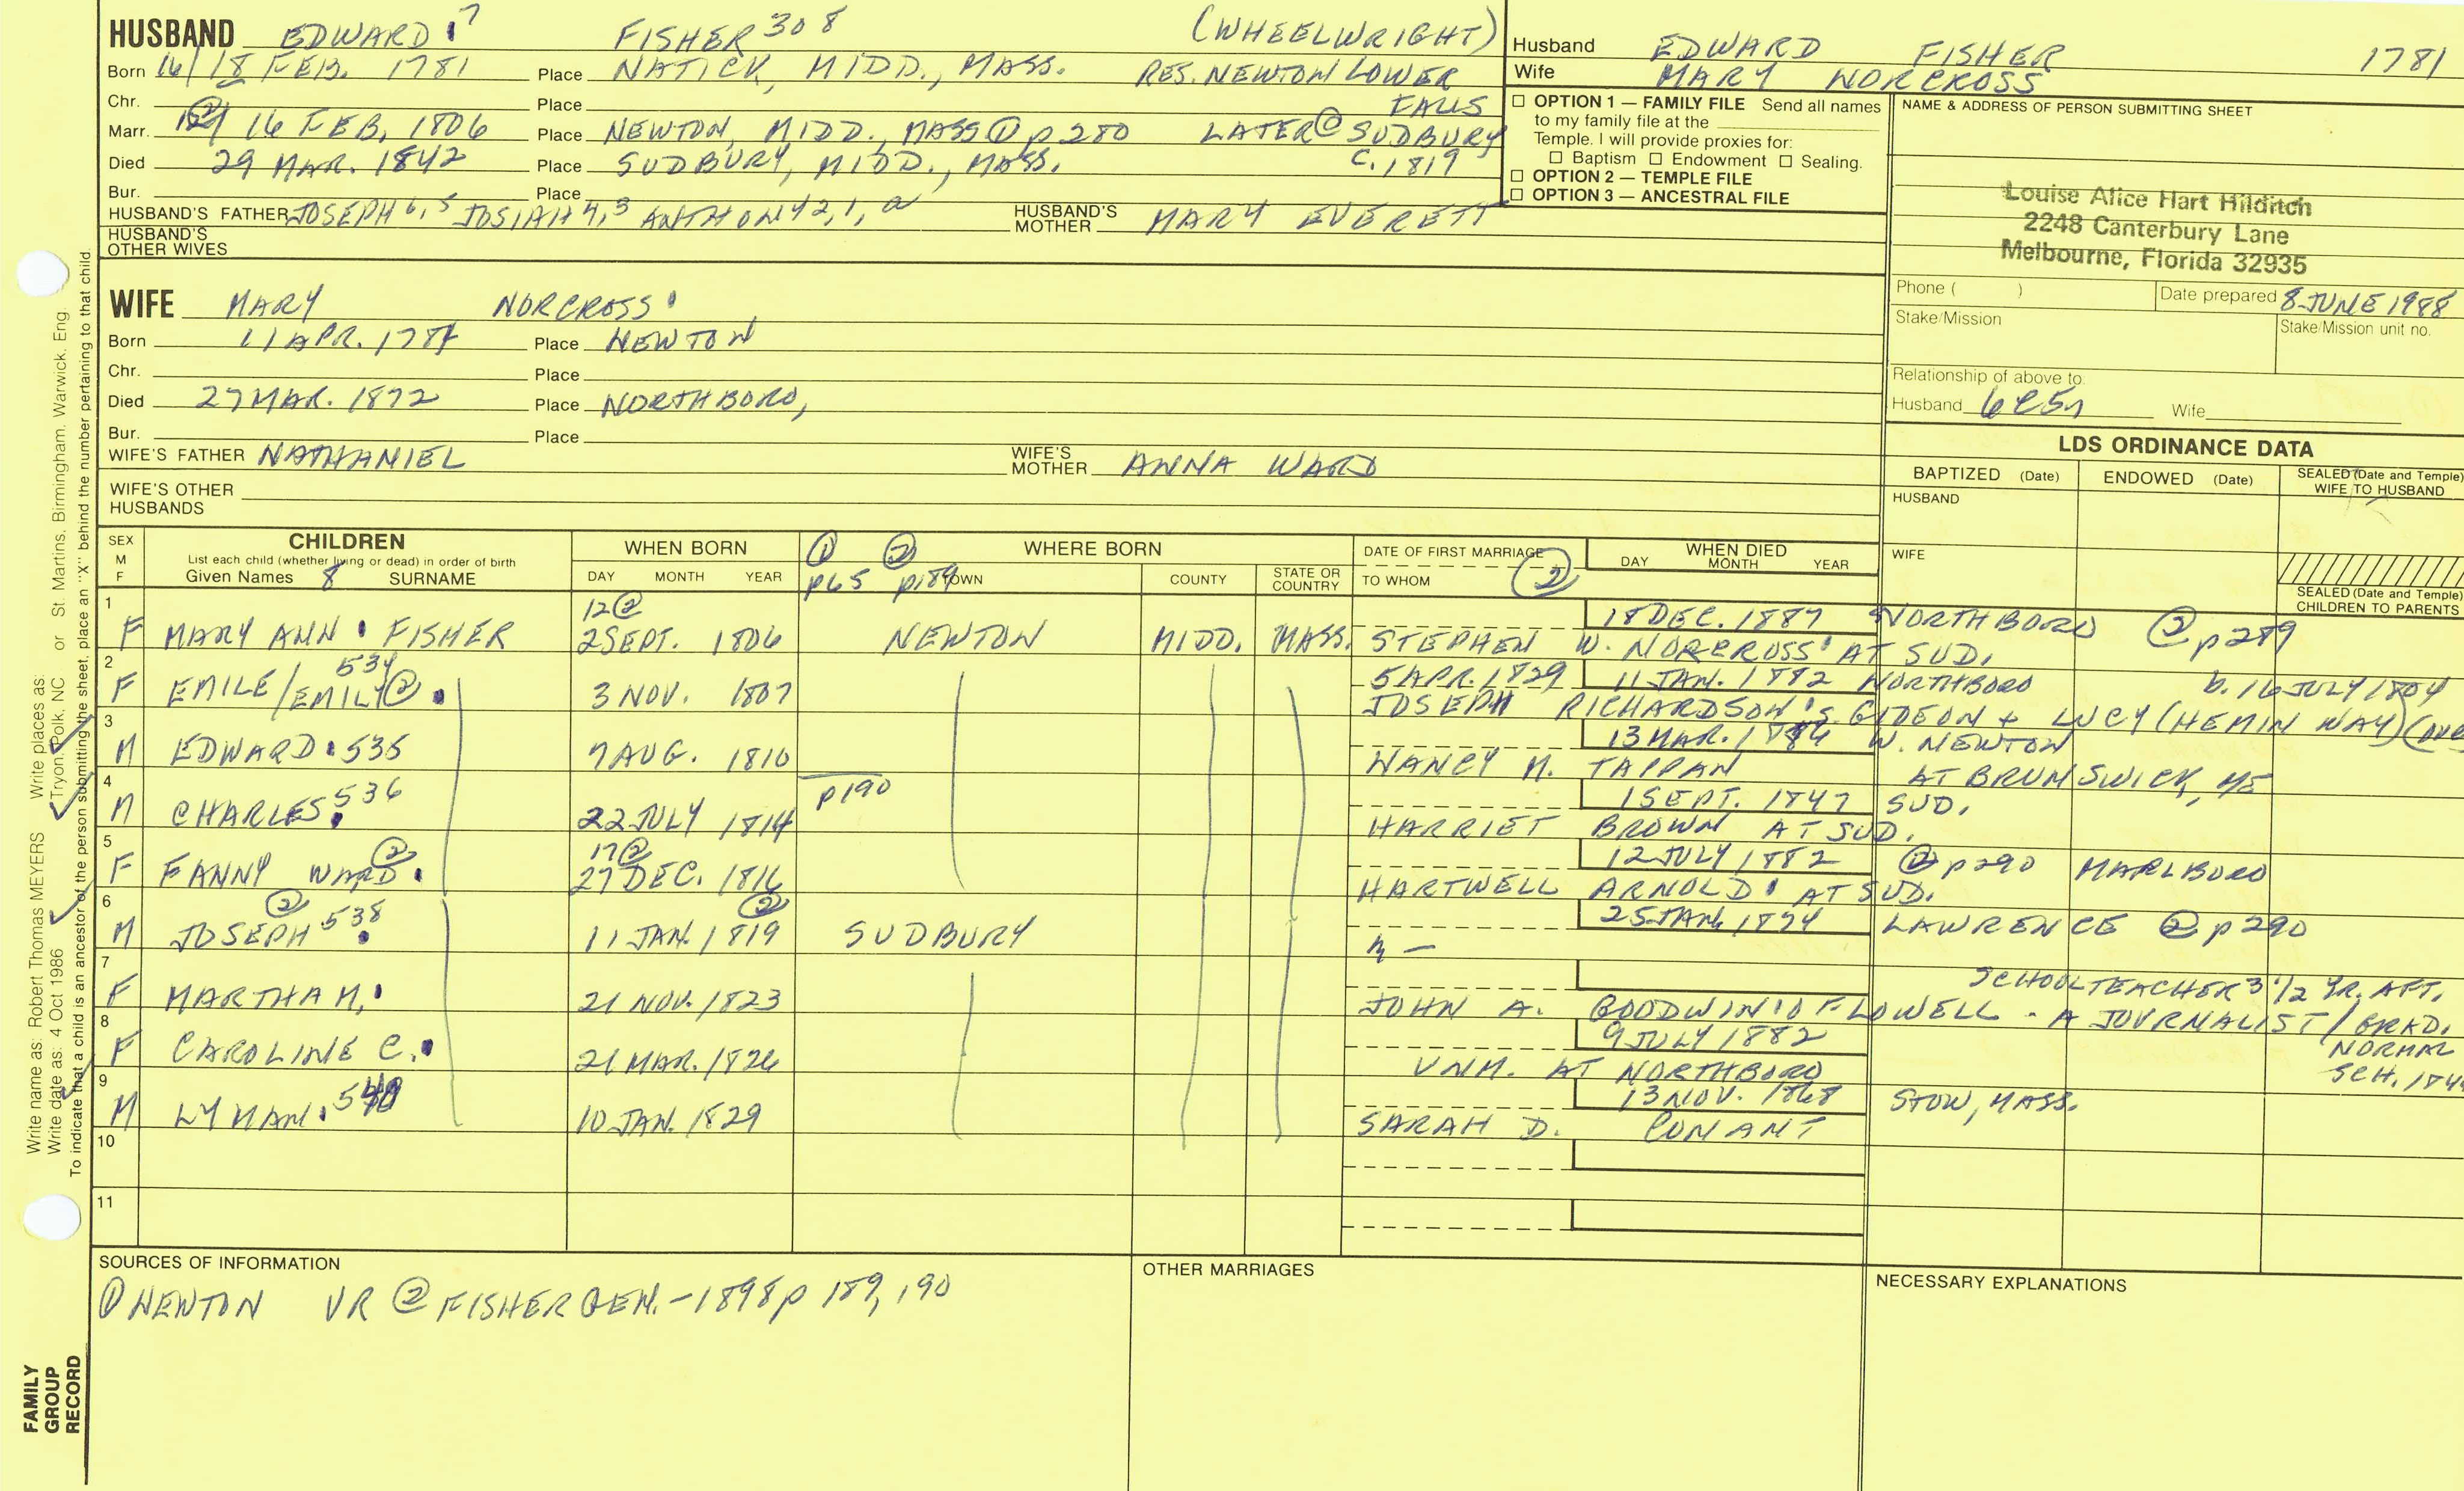 HUSBAND EDWARD 7 FISHER 308 (WHEELWRIGHT)
Born 16/18 FEB. 1781 Place NATICK, MIDD., MASS. RES. NEWTON LOWER FALLS
Chr. Place
Marr. 16 FEB. 1806 Place NEWTON, MIDD., MASS ① p 280 LATER ② SUDBURY C. 1819
Died 29 MAR. 1842 Place SUDBURY, MIDD., MASS.
Bur. Place
HUSBAND'S FATHER JOSEPH 6, 5 JOSIAH 4, 3 ANTHONY 2, 1, a HUSBAND'S MOTHER MARY EVERETT
HUSBAND'S OTHER WIVES
Husband EDWARD FISHER 1781
Wife MARY NORCROSS
☐ OPTION 1 — FAMILY FILE Send all names
to my family file at the
Temple. I will provide proxies for:
☐ Baptism ☐ Endowment ☐ Sealing.
☐ OPTION 2 — TEMPLE FILE
☐ OPTION 3 — ANCESTRAL FILE
NAME & ADDRESS OF PERSON SUBMITTING SHEET
Louise Alice Hart Hilditch
2248 Canterbury Lane
Melbourne, Florida 32935
Phone ( ) Date prepared 8 JUNE 1988
Stake/Mission Stake/Mission unit no.
Relationship of above to:
Husband Wife
WIFE MARY NORCROSS
Born 11 APR. Place NEWTON
Chr. Place
Died 27 MAR. 1872 Place NORTHBORO,
Bur. Place
WIFE'S FATHER NATHANIEL WIFE'S MOTHER ANNA WARD
WIFE'S OTHER HUSBANDS
LDS ORDINANCE DATA
BAPTIZED (Date) ENDOWED (Date) SEALED (Date and Temple) WIFE TO HUSBAND
HUSBAND
WIFE
SEALED (Date and Temple) CHILDREN TO PARENTS
SEX M F
CHILDREN
List each child (whether living or dead) in order of birth
Given Names 8 SURNAME
WHEN BORN
DAY MONTH YEAR
① p65 ② p.189
WHERE BORN
TOWN COUNTY STATE OR COUNTRY
DATE OF FIRST MARRIAGE ②
TO WHOM
WHEN DIED
DAY MONTH YEAR
1 12② 18 DEC. 1887 NORTHBORO ② p 289
F MARY ANN FISHER 2 SEPT. 1806 NEWTON MIDD. MASS. STEPHEN W. NORCROSS AT SUD.
2 534 5 APR. 1829 11 JAN. 1882 NORTHBORO b. 16 JULY 1804
F EMILE/EMILY ② 3 NOV. 1807 JOSEPH RICHARDSON S. GIDEON + LUCY (HEMINWAY)
3 13 MAR. W. NEWTON
M EDWARD 535 7 AUG. 1810 NANCY M. TAPPAN AT BRUNSWICK, ME
4 p190 1 SEPT. 1847 SUD.
M CHARLES 536 22 JULY 1814 HARRIET BROWN AT SUD.
5 ② 17② 12 JULY 1882 ② p 290 MARLBORO
F FANNY WARD 27 DEC. 1816 HARTWELL ARNOLD AT SUD.
6 ② ② 25 JAN. 1874 LAWRENCE ② p 290
M JOSEPH 538 11 JAN. 1819 SUDBURY
7 SCHOOLTEACHER 3 1/2 YR. AFT.
F MARTHA M. 21 NOV. 1823 JOHN A. GOODWIN OF LOWELL - A JOURNALIST / GRAD. NORMAL SCH.
8 9 JULY 1882
F CAROLINE C. 21 MAR. 1826 UNM. AT NORTHBORO
9 13 NOV. 1868 STOW, MASS.
M LYMAN 10 JAN. 1829 SARAH D. CONANT
10
11
SOURCES OF INFORMATION
① NEWTON VR ② FISHER GEN. - 1898 p 189, 190
OTHER MARRIAGES
NECESSARY EXPLANATIONS
Write name as: Robert Thomas MEYERS Write places as: Tryon, Polk, NC or St. Martins, Birmingham, Warwick, Eng.
Write date as: 4 Oct 1986
To indicate that a child is an ancestor of the person submitting the sheet, place an "X" behind the number pertaining to that child.
FAMILY
GROUP
RECORD